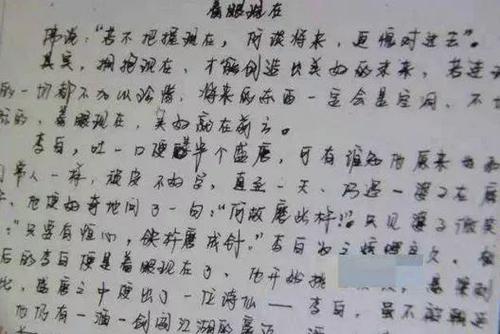 着眼现在
佛说："若不把握现在，何谈将来，更愧对过去"。
其实，拥抱现在，才能创造比美好的未来，若连
的一切都不加以珍惜，将来的东西一定会是空洞、不
的，着眼现在，美好 在前方。
李白，吐一口便 半个盛唐，可有谁知他原来也和
常人一样，顽皮不好学，直至一天、巧遇一婆子在磨
他便好奇地问了一句："何故磨此杵" 只见婆子微笑
："只要有恒心，铁杵磨成针。"李白为之
后的李白便是着眼现在了，他开始
，盛唐之中便出了一位诗仙——李白，虽不
他仍有一酒一剑闯江湖的豪迈